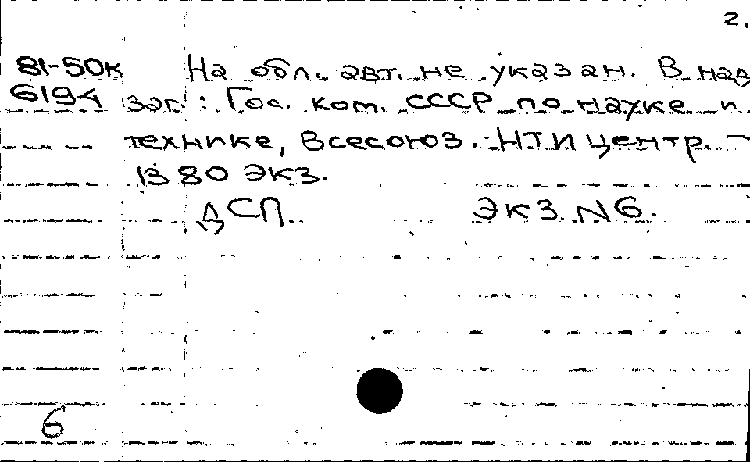 2.
81-50к На обл. авт. не указан. В над
6194 заг.: Гос. ком. СССР по науке и
технике, Всесоюз. НТИ центр. –
1380 экз.
ДСП. Экз. N6.
6